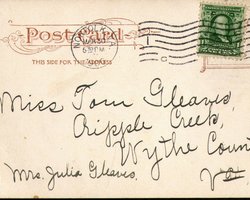 POST CARD
THIS SIDE FOR THE ADDRESS
Miss Tom Gleaves,
Cripple Creek,
Wythe Coun
Mrs. Julia Gleaves,
Va.